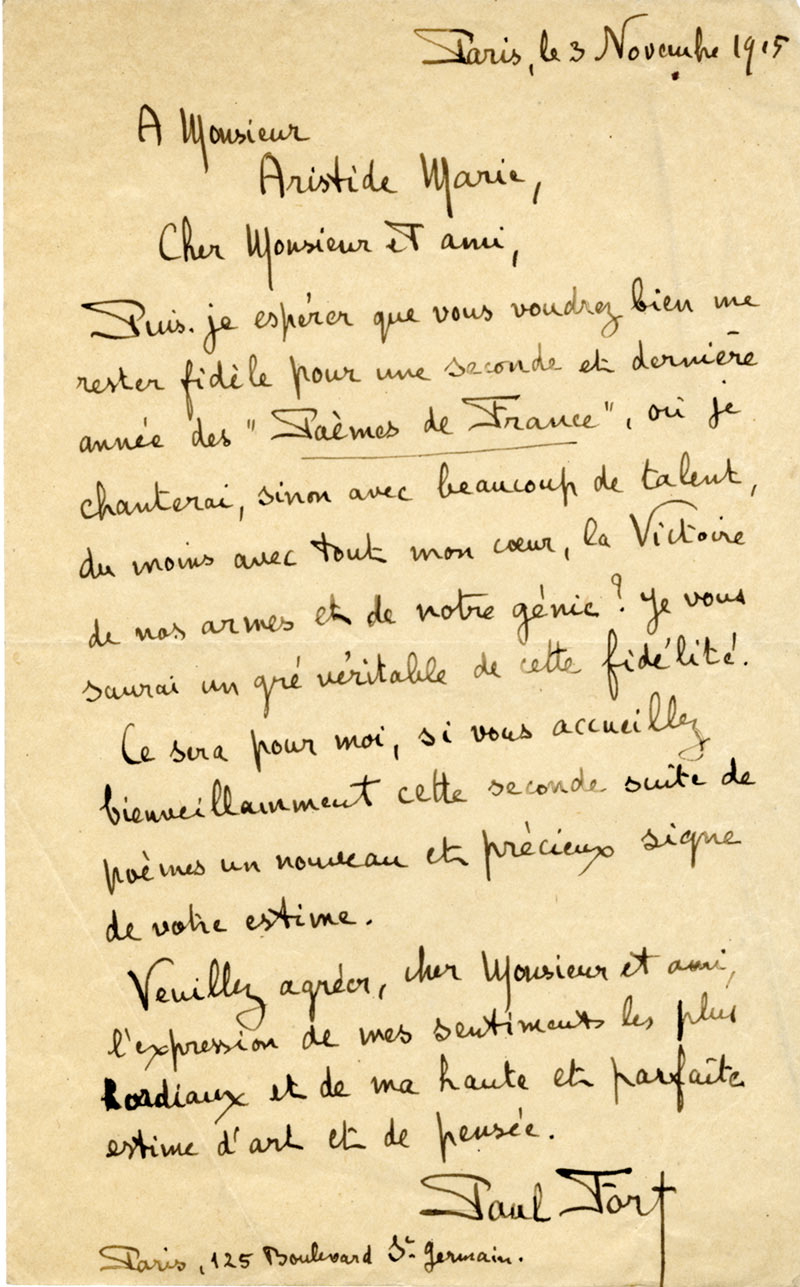 Paris, le 3 Novembre 1915
A Monsieur
Aristide Marie,
Cher Monsieur et ami,
Puis-je espérer que vous voudrez bien me
rester fidèle pour une seconde et dernière
année des "Poèmes de France", où je
chanterai, sinon avec beaucoup de talent,
du moins avec tout mon cœur, la Victoire
de nos armes et de notre génie? Je vous
saurai un gré véritable de cette fidélité.
Ce sera pour moi, si vous accueillez
bienveillamment cette seconde suite de
poèmes un nouveau et précieux signe
de votre estime.
Veuillez agréer, cher Monsieur et ami,
l'expression de mes sentiments les plus
cordiaux et de ma haute et parfaite
estime d'art et de pensée.
Paul Fort
Paris, 125 Boulevard St-Germain.